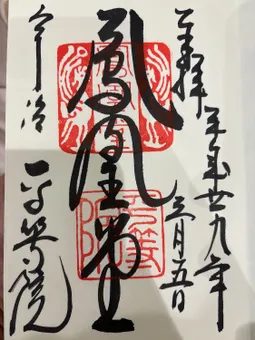 奉拝
平成廿九年
三月五日
鳳凰堂
宇治
平等院